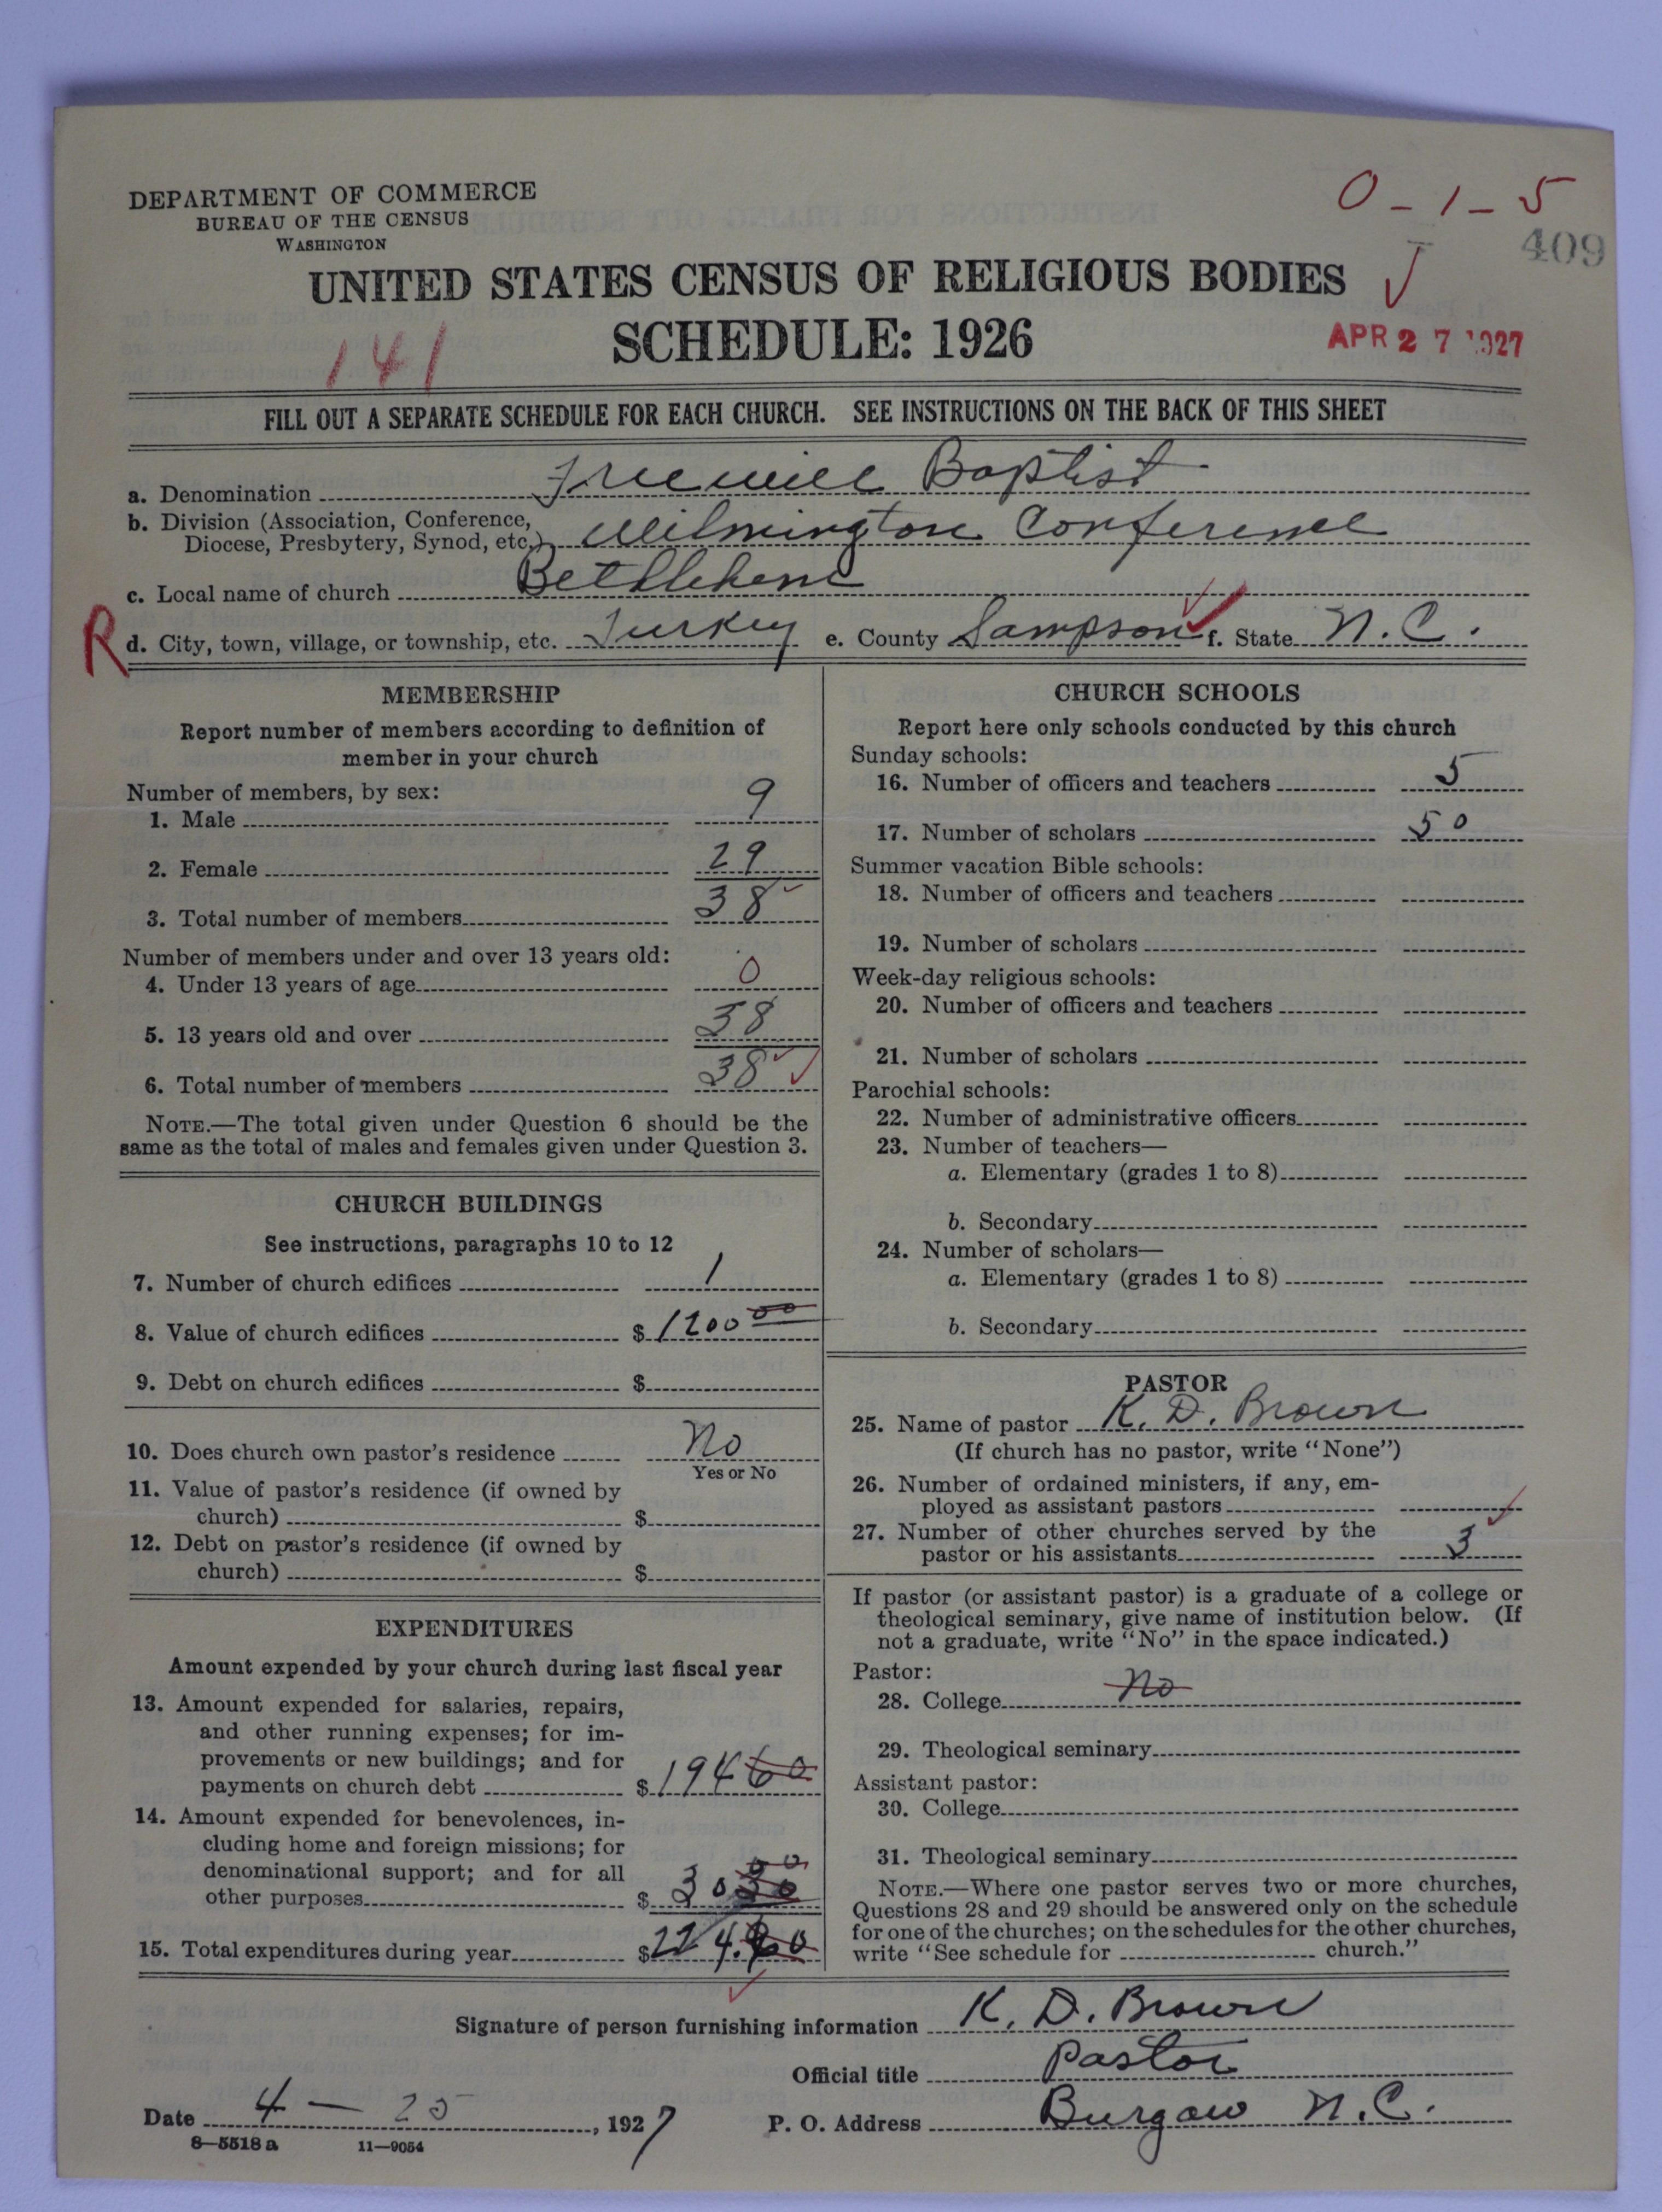 0-1-5
409
DEPARTMENT OF COMMERCE
BUREAU OF THE CENSUS
WASHINGTON
UNITED STATES CENSUS OF RELIGIOUS BODIES
SCHEDULE: 1926
141
APR 27 1927
FILL OUT A SEPARATE SCHEDULE FOR EACH CHURCH. SEE INSTRUCTIONS ON THE BACK OF THIS SHEET
a. Denomination Freewill Baptist
b. Division (Association, Conference,
Diocese, Presbytery, Synod, etc.) Wilmington Conference
c. Local name of church Bethlehem
R d. City, town, village, or township, etc. Turkey e. County Sampson f. State N. C.
MEMBERSHIP
Report number of members according to definition of
member in your church
Number of members, by sex:
1. Male 9
2. Female 29
3. Total number of members 38
Number of members under and over 13 years old:
4. Under 13 years of age 0
5. 13 years old and over 38
6. Total number of members 38
NOTE.—The total given under Question 6 should be the
same as the total of males and females given under Question 3.
CHURCH BUILDINGS
See instructions, paragraphs 10 to 12
7. Number of church edifices 1
8. Value of church edifices $ 1200 00
9. Debt on church edifices $
10. Does church own pastor's residence No
Yes or No
11. Value of pastor's residence (if owned by
church) $
12. Debt on pastor's residence (if owned by
church) $
EXPENDITURES
Amount expended by your church during last fiscal year
13. Amount expended for salaries, repairs,
and other running expenses; for im-
provements or new buildings; and for
payments on church debt $ 194 60
14. Amount expended for benevolences, in-
cluding home and foreign missions; for
denominational support; and for all
other purposes $ 30
15. Total expenditures during year $ 224
CHURCH SCHOOLS
Report here only schools conducted by this church
Sunday schools:
16. Number of officers and teachers 5
17. Number of scholars 50
Summer vacation Bible schools:
18. Number of officers and teachers
19. Number of scholars
Week-day religious schools:
20. Number of officers and teachers
21. Number of scholars
Parochial schools:
22. Number of administrative officers
23. Number of teachers—
a. Elementary (grades 1 to 8)
b. Secondary
24. Number of scholars—
a. Elementary (grades 1 to 8)
b. Secondary
PASTOR
25. Name of pastor K. D. Brown
(If church has no pastor, write "None")
26. Number of ordained ministers, if any, em-
ployed as assistant pastors
27. Number of other churches served by the
pastor or his assistants 3
If pastor (or assistant pastor) is a graduate of a college or
theological seminary, give name of institution below. (If
not a graduate, write "No" in the space indicated.)
Pastor:
28. College No
29. Theological seminary
Assistant pastor:
30. College
31. Theological seminary
NOTE.—Where one pastor serves two or more churches,
Questions 28 and 29 should be answered only on the schedule
for one of the churches; on the schedules for the other churches,
write "See schedule for church."
Signature of person furnishing information K. D. Brown
Official title Pastor
Date 4 - 25, 1927 P. O. Address Burgaw N.C.
8—5518 a 11—9054